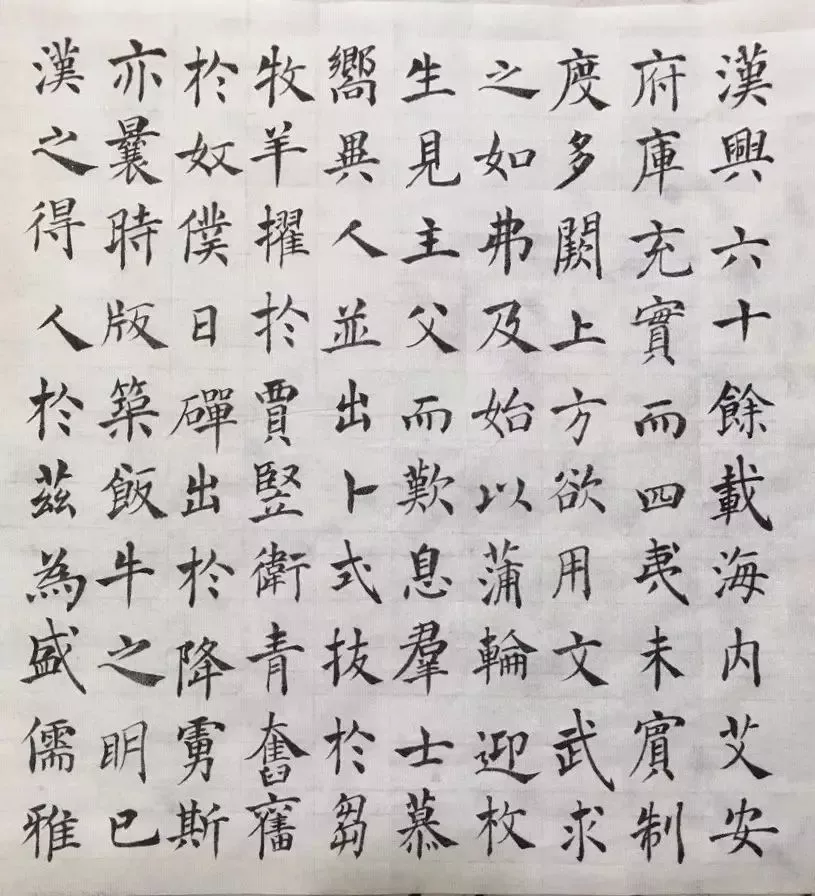 漢興六十餘載海內艾安
府庫充實而四夷未賓制
度多闕上方欲用文武求
之如弗及始以蒲輪迎枚
生見主父而歎息羣士慕
嚮異人並出卜式拔於芻
牧羊擢於賈豎衛青奮
於奴僕日磾出於降虜斯
亦曩時版築飯牛之明巳
漢之得人於茲為盛儒雅